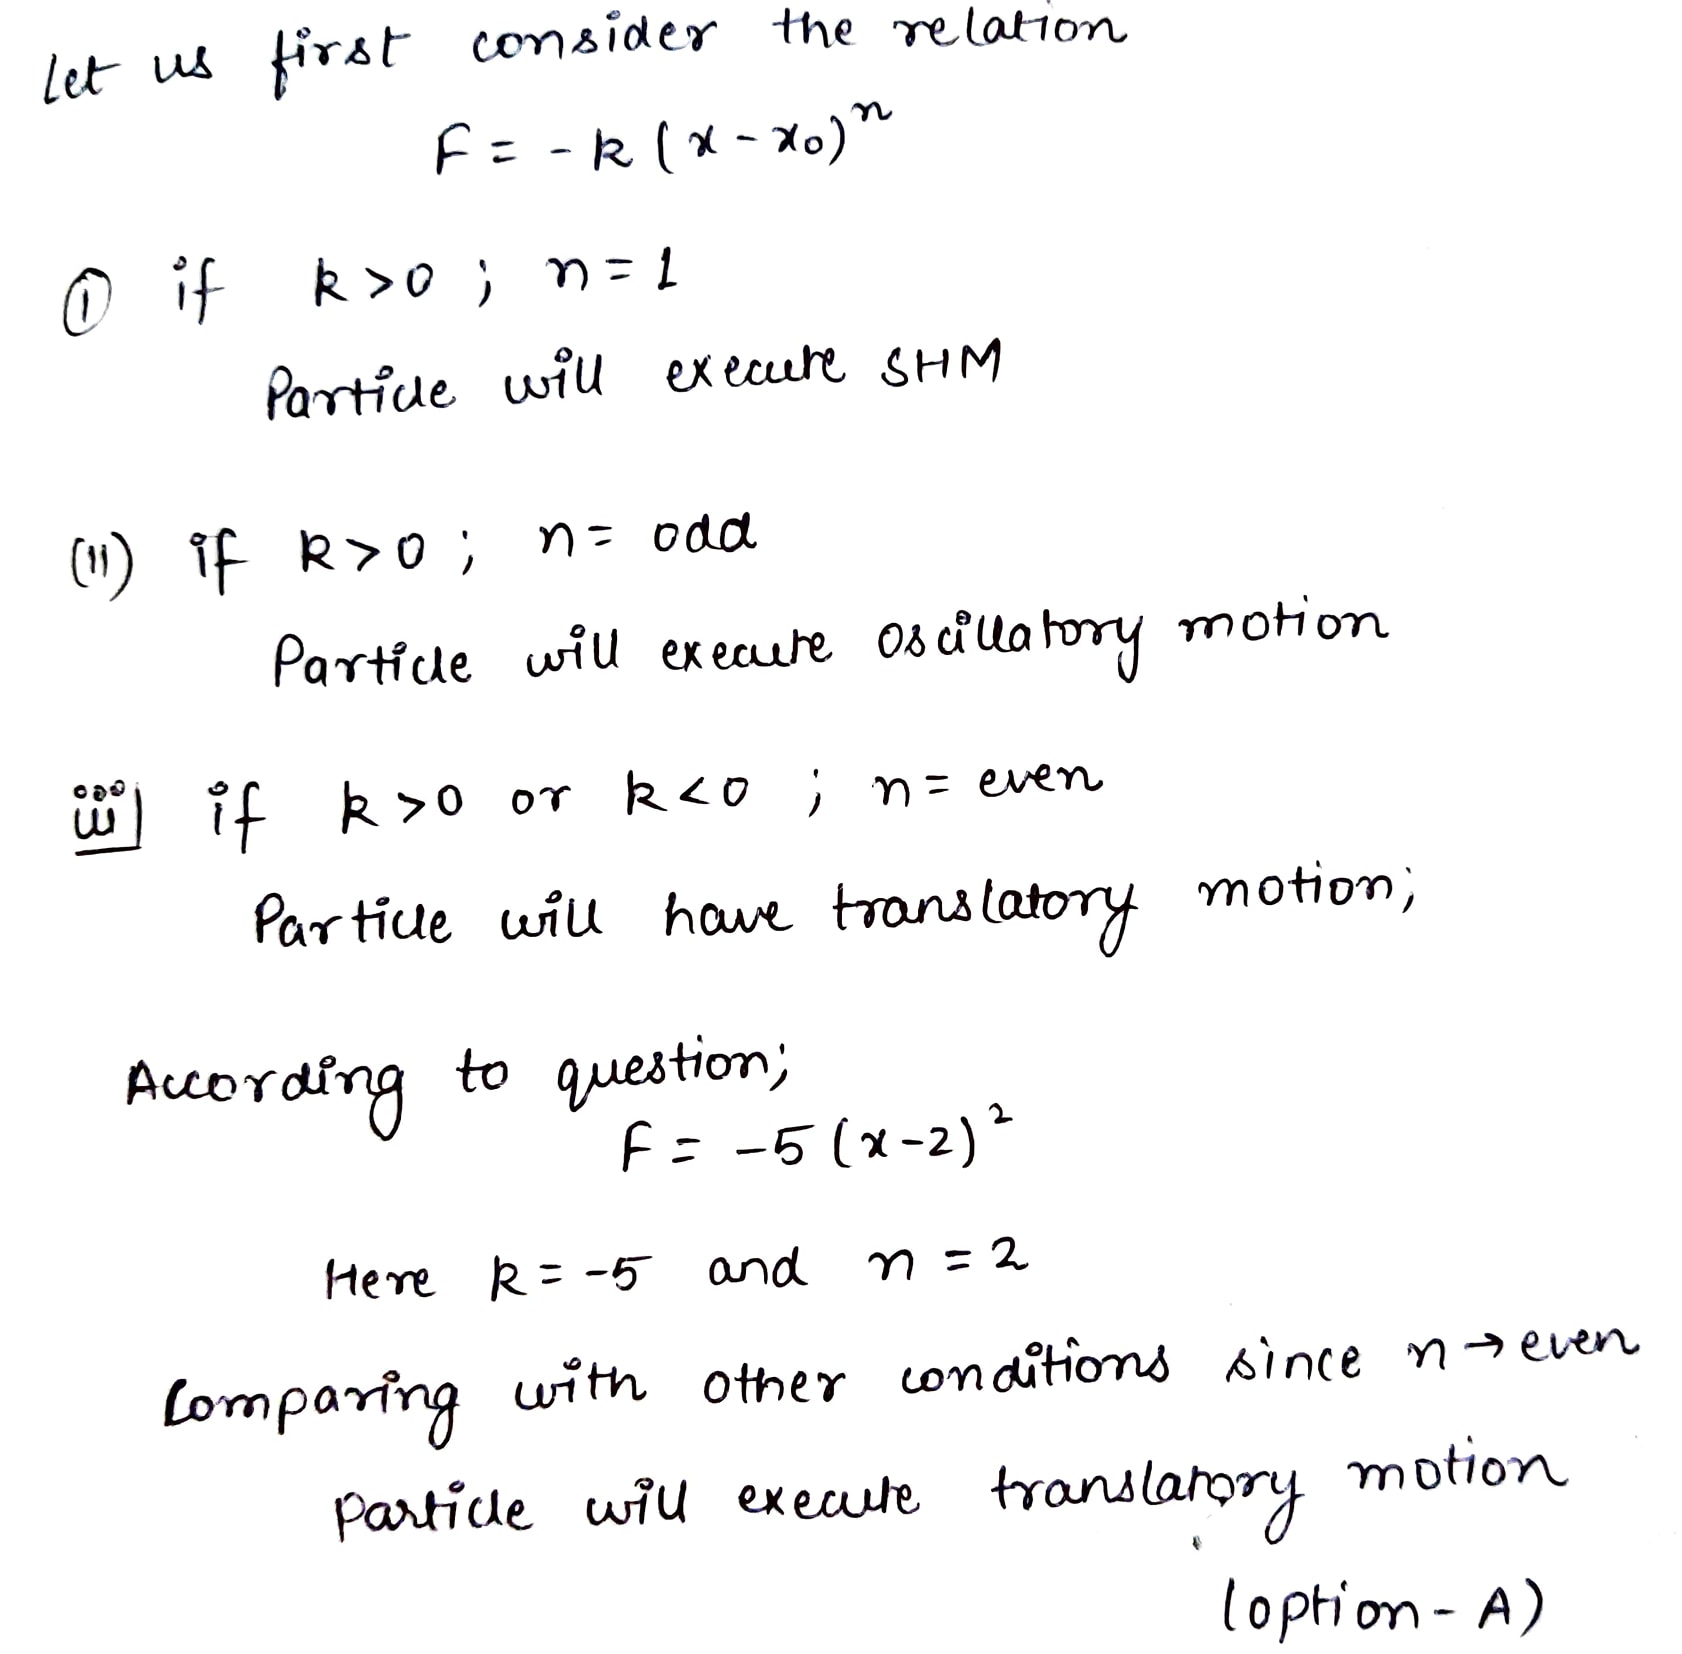 Let us first consider the relation
F = - k (x - x₀)ⁿ
① if k > 0 ; n = 1
Particle will execute SHM
(II) if k > 0 ; n = odd
Particle will execute oscillatory motion
iii) if k > 0 or k < 0 ; n = even
Particle will have translatory motion;
According to question;
F = -5 (x-2)²
Here k = -5 and n = 2
Comparing with other conditions since n → even
Particle will execute translatory motion
(option - A)